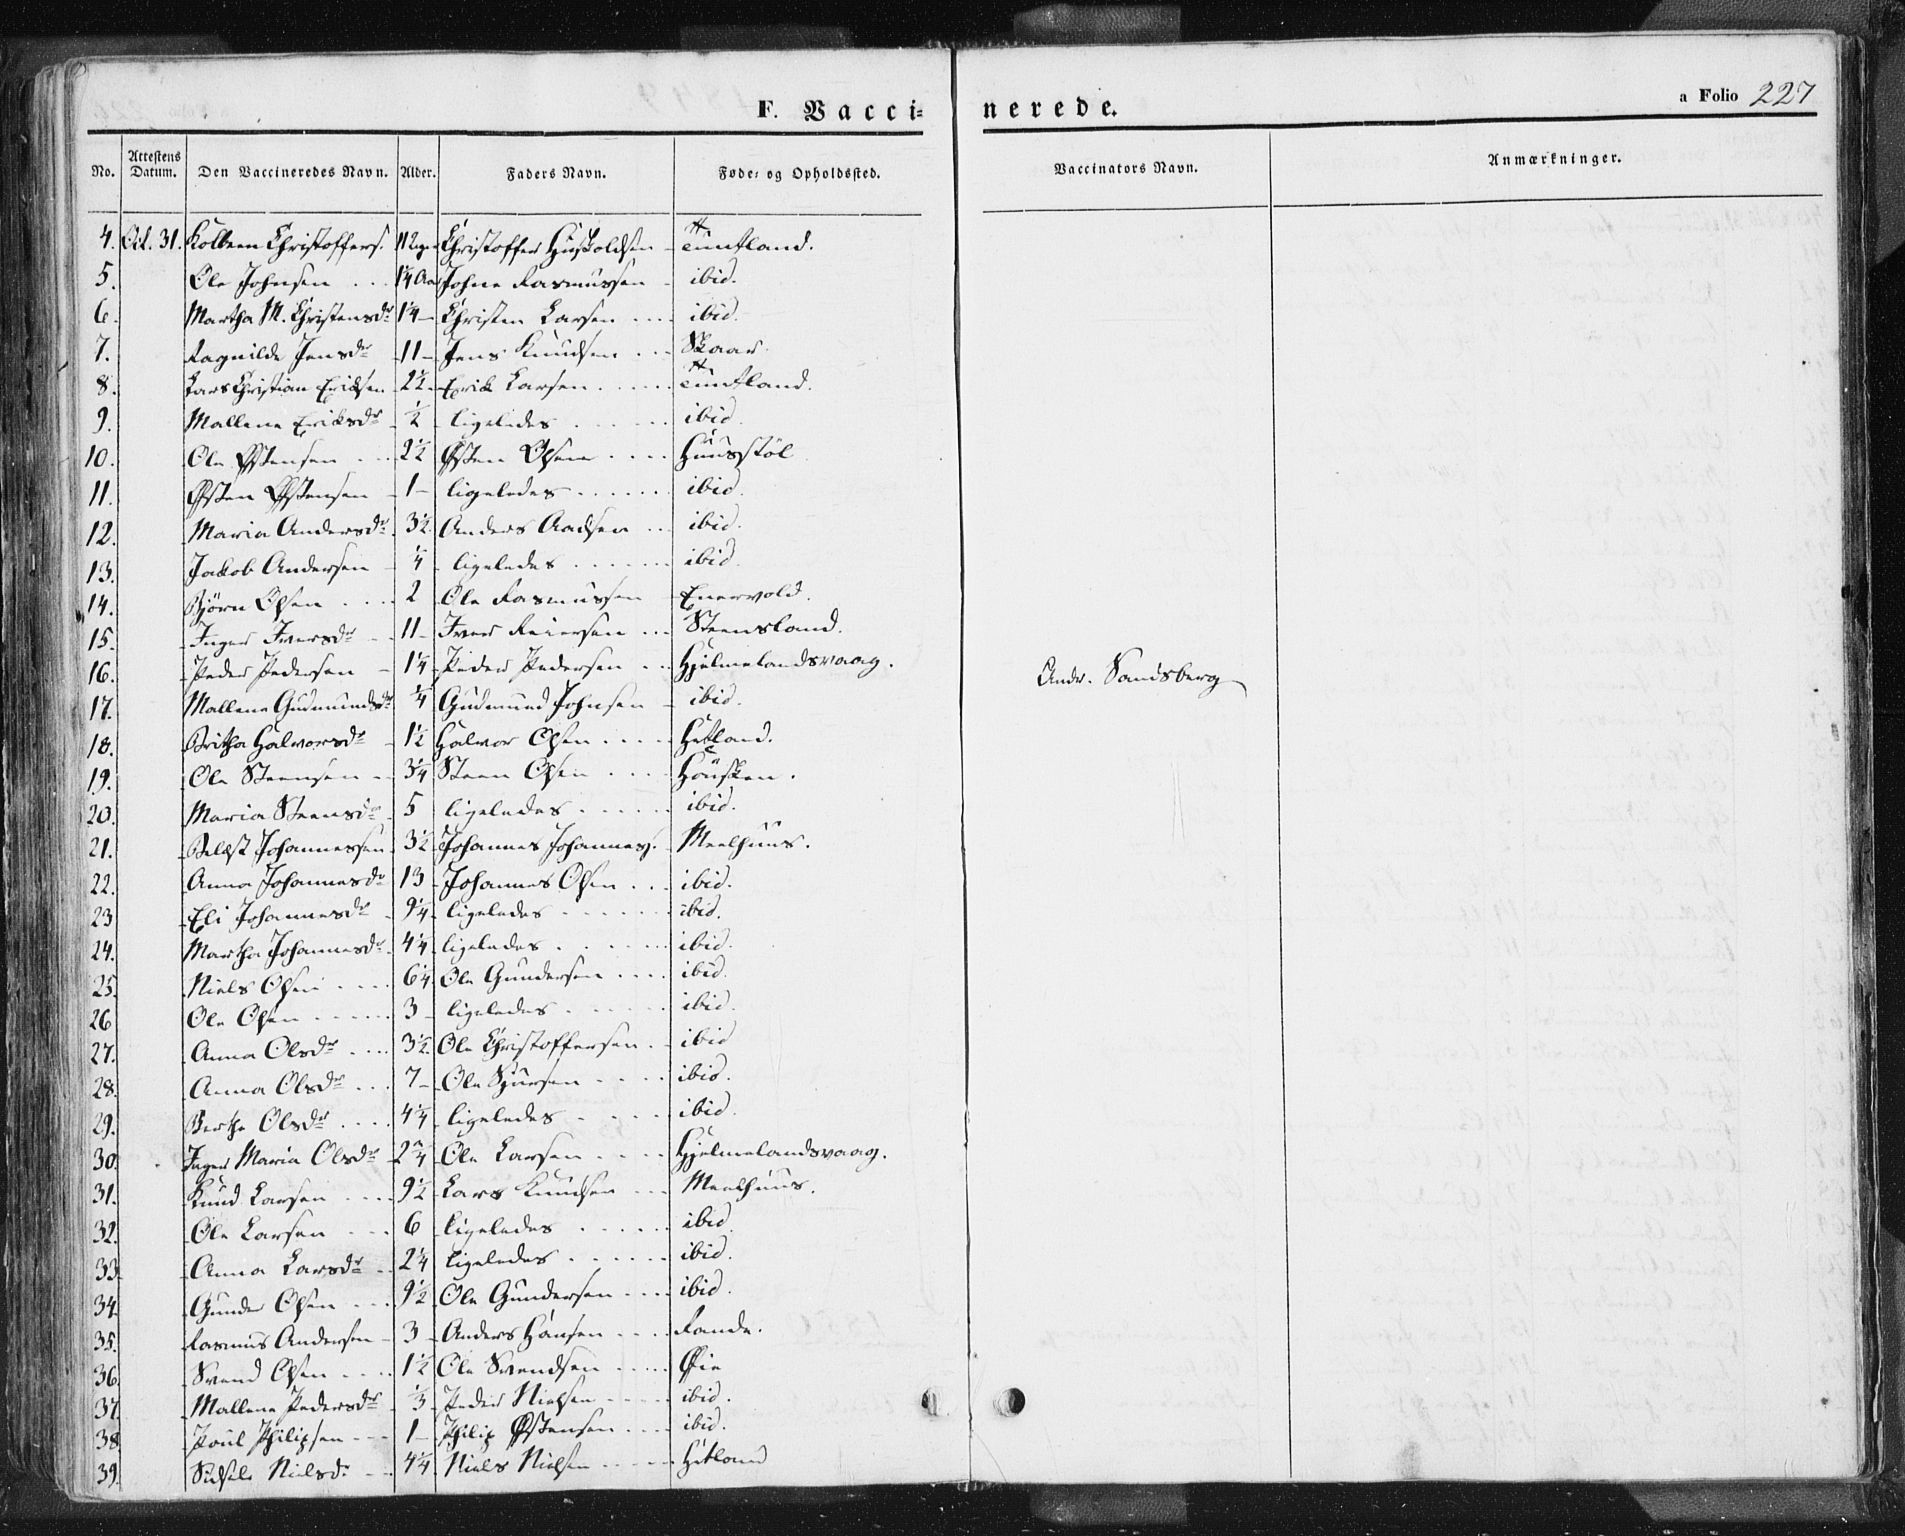 F. Vacci=
nerede.
a Folio 227
No. Attestens Datum. Den Vaccineredes Navn. Alder. Faders Navn. Føde= og Opholdssted. Vaccinators Navn. Anmærkninger.
4. Oct. 31. Kolbeen Christoffers. 11 Uger Christoffer Huskoldsen Tuntland.
5. Ole Johnsen 1¼ Aar Johne Rasmussen ibid.
6. Martha M. Christensdr 1¼ Christen Larsen ibid.
7. Ragnilde Jensdr 11 Jens Knudsen Skaar
8. Lars Christian Ericksen 2½ Erick Larsen Tuntland.
9. Mallene Ericksdr ½ ligeledes ibid.
10. Ole Østensen 2½ Østen Olsen Huusstöl
11. Østen Østensen 1 ligeledes ibid.
12. Maria Andersdr 3½ Anders Aadsen ibid.
13. Jakob Andersen ¼ ligeledes ibid.
14. Björn Olsen 2 Ole Rasmussen Enervold.
15. Inger Iversdr 11 Iver Reiersen Steensland.
16. Peder Pedersen 1¼ Peder Pedersen Hjelmelandsvaag.
17. Mallene Gudmundsdr ¼ Gudmund Johnsen ibid.
Andr. Sandsberg
18. Britha Halvorsdr 1½ Halvor Olsen Hetland.
19. Ole Steensen ¾ Steen Olsen Höusken.
20. Maria Steensdr 5 ligeledes ibid.
21. Belest Johannessen 3½ Johannes Johannes. Meelhuus.
22. Anna Johannesdr 13 Johannes Olsen ibid.
23 Eli Johannesdr 9¼ ligeledes ibid.
24. Martha Johannesdr 4¼ ligeledes ibid.
25. Niels Olsen 6¼ Ole Gundersen ibid.
26 Ole Olsen 3 ligeledes ibid.
27. Anna Olsdr 3½ Ole Christoffersen ibid
28. Anna Olsdr 7 Ole Sjursen ibid.
29. Berthe Olsdr 4¼ ligeledes ibid.
30. Inger Maria Olsdr 2¼ Ole Larsen Hjelmelandsvaag.
31. Knud Larsen 9½ Lars Knudsen Meelhuus.
32. Ole Larsen 6 ligeledes ibid.
33. Anna Larsdr 2¼ ligeledes ibid.
34. Gunder Olsen 9½ Ole Gundersen ibid.
35. Rasmus Andersen 3 Anders Hansen Rande.
36. Svend Olsen 1½ Ole Svendsen Øie
37. Mallene Pedersdr ⅓ Peder Nielsen ibid.
38 Poul Philipsen 1 Philip Østensen ibid.
39. Sidsele Nielsdr 4¼ Niels Nielsen Hetland